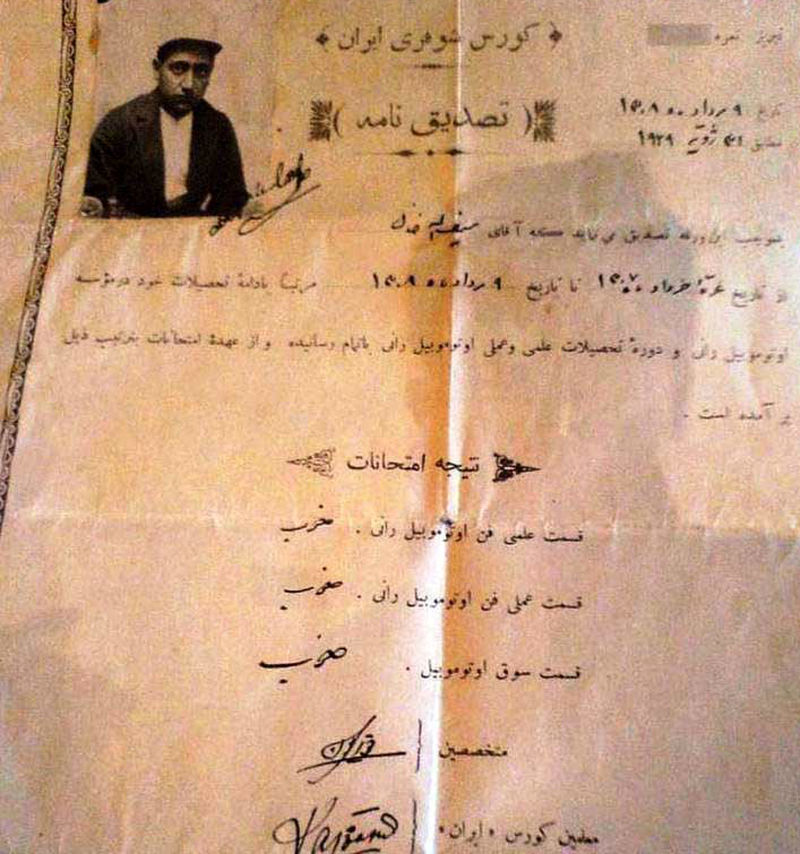 کورس شوفری ایران
تبریز نمره
( تصدیق نامه )
تاریخ ۹ مرداد ماه ۱۳۰۸
مطابق ۳۱ ژوئیه ۱۹۲۹
بموجب این ورقه تصدیق می نماید که آقای
از تاریخ غره خرداد ۱۳۰۸ تا تاریخ ۹ مرداد ماه ۱۳۰۸ مرتبا بادامهٔ تحصیلات خود در مؤسسه
اوتوموبیل رانی و دورهٔ تحصیلات علمی و عملی اوتوموبیل رانی باتمام رسانیده و از عهدهٔ امتحانات بترتیب ذیل
بر آمده است .
نتیجه امتحانات
قسمت علمی فن اوتوموبیل رانی . خوب
قسمت عملی فن اوتوموبیل رانی . خوب
قسمت سوق اوتوموبیل . خوب
متخصصین
معلمین کورس «ایران»